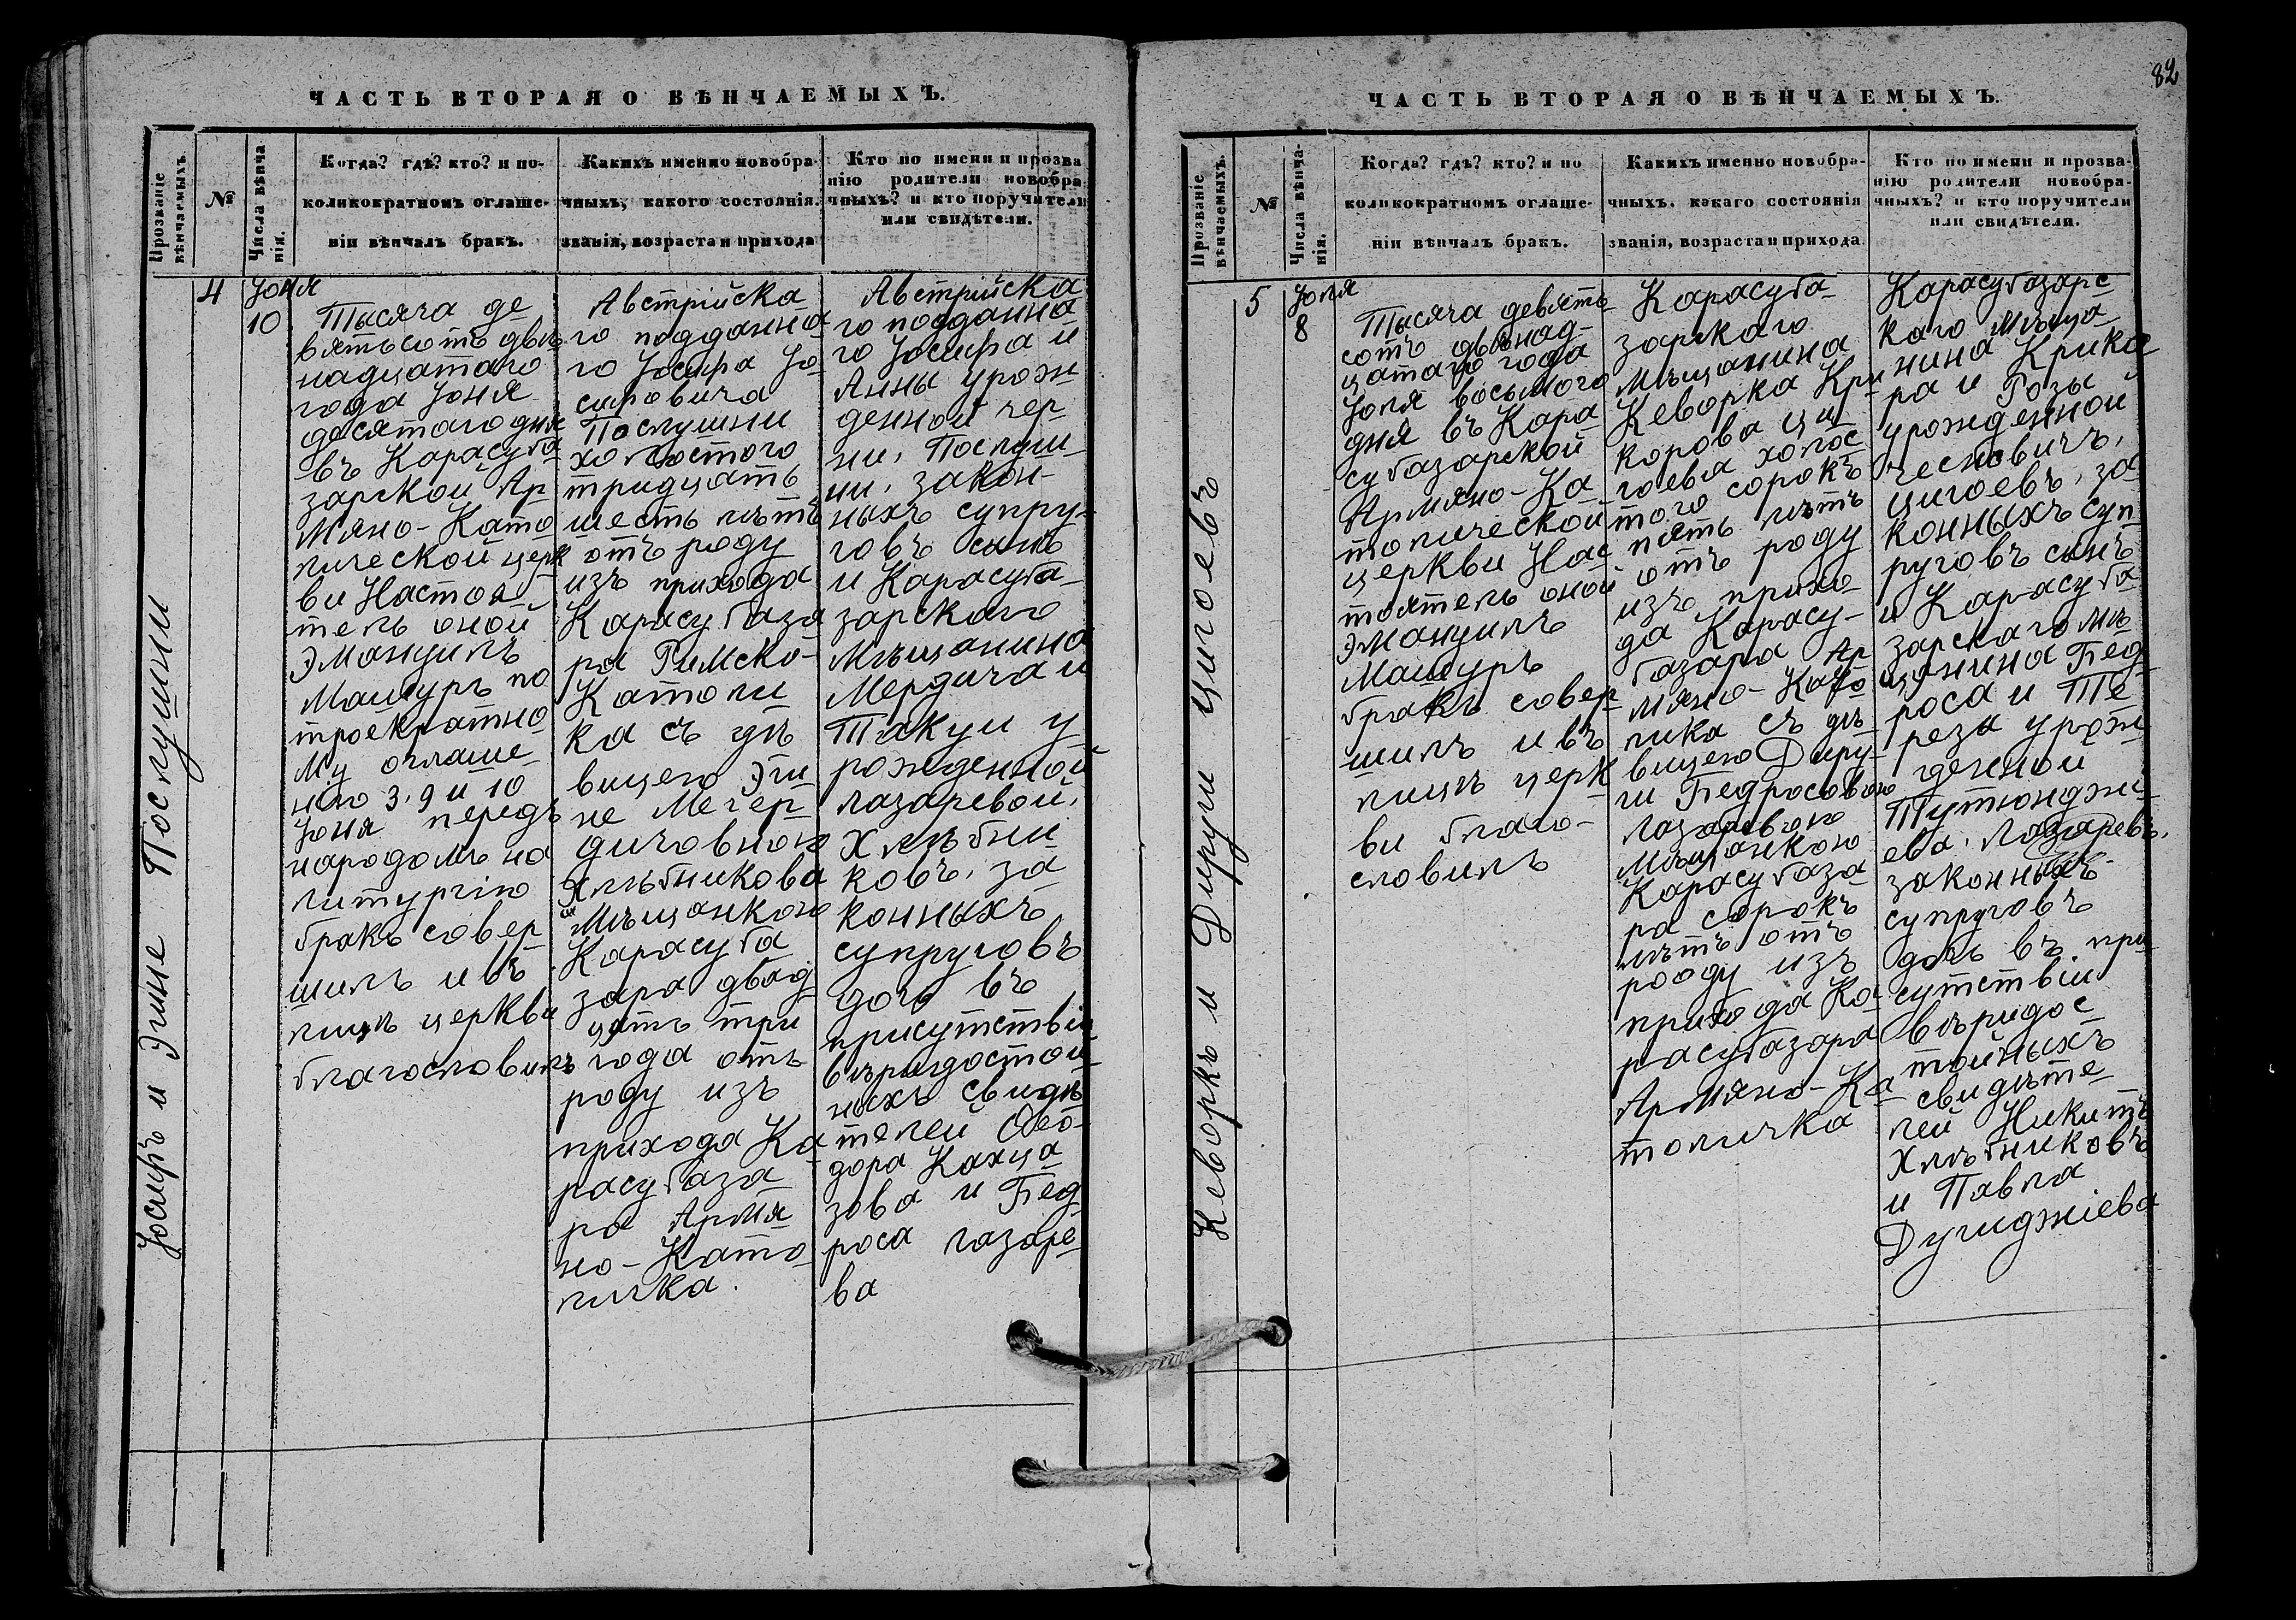 ЧАСТЬ ВТОРАЯ О ВѢНЧАЕМЫХЪ.
Прозваніе
вѣнчаемыхъ.
№
Числа вѣнча
нія.
Когда? гдѣ? кто? и по-
коликократномъ оглаше-
ніи вѣнчалъ бракъ.
Какихъ именно новобра-
чныхъ, какого состоянія.
званія, возраста и прихода
Кто по имени и прозва
нію родители новобра
чныхъ? и кто поручители
или свидѣтели.
Іосифъ и Эгине Послушни
4
Іоня
10
Тысяча де
вятьсотъ двѣ
надцатаго
года Іоня
десятаго дня
въ Карасуба
зарской Ар
мяно-Като
лической церк
ви Настоя
тель оной
Эмануилъ
Машуръ по
троекратно
му оглаше
нію 3, 9 и 10
Іоня передъ
народомъ на
литургію
бракъ совер
шилъ и въ
лицѣ церкви
благословилъ
Австрійска
го подданна
го Іосифа Іо
сифовича
Послушни
холостого
тридцать
шесть лѣтъ
отъ роду
изъ прихода
Карасубаза
ра Римско-
Католи
ка съ дѣ
вицею Эги
не Мегер
дичовною
Хлѣбникова
мѣщанкою
Карасуба
зара двад
цать три
года отъ
роду изъ
прихода Ка
расубаза
ра Армя
но-Като
личка.
Австрійска
го подданна
го Іосифа и
Анны урож
денной Чер
ни, Послуш
ни, закон-
ныхъ супру-
говъ сынъ
и Карасуба-
зарскаго
мѣщанина
Мердича и
Такуи у
рожденной
Лазаревой,
Хлѣбни
ковъ, за
конныхъ
супруговъ
дочь въ
присутствіи
вѣридостой
ныхъ свидѣ
телей Ѳео-
дора Кахца
зова и Бед
роса Лазаре
ва
82
ЧАСТЬ ВТОРАЯ О ВѢНЧАЕМЫХЪ.
Прозваніе
вѣнчаемыхъ.
№
Числа вѣнча-
нія.
Когда? гдѣ? кто? и по
коликократномъ оглаше-
ніи вѣнчалъ бракъ.
Какихъ именно новобра-
чныхъ. какаго состоянія
званія, возраста и прихода.
Кто по имени и прозва-
нію родители новобра-
чныхъ? и кто поручители
или свидѣтели.
Кеворкъ и Дируги Цигоевъ
5
Іоля
8
Тысяча девять
сотъ двѣнад-
цатаго года
Іоля восьмого
дня въ Кара
субазарской
Армяно-Ка
толической
церкви Нас
тоятель оной
Эмануилъ
Машуръ
бракъ совер
шилъ и въ
лицѣ церк
ви благо-
словилъ
Карасуба-
зарскаго
мѣщанина
Кеворка Кри
корова Ци
гоева холос
того сорокъ
пять лѣтъ
отъ роду
изъ прихо
да Карасу-
базара Ар
мяно-Като
лика съ дѣ
вицею Диру-
ги Бедросовою
Лазаревою
мѣщанкою
Карасубаза
ра сорокъ
лѣтъ отъ
роду изъ
прихода Ка
расубазара
Армяно-Ка
толичка
Карасубазарс
каго мѣща
нина Крико
ра и Розы
урожденной
Чесновичъ,
Цигоевъ, за
конныхъ суп
руговъ сынъ
и Карасуба
зарскаго мѣ
щанина Бед
роса и Те
реза урож
денной
Тутюнджи
ева, Лазаревъ,
законныхъ
супруговъ
дочь въ при
сутствіи
вѣридос
тойныхъ
свидѣте
лей Никитъ
Хлѣбниковъ
и Павла
Дугиджіева